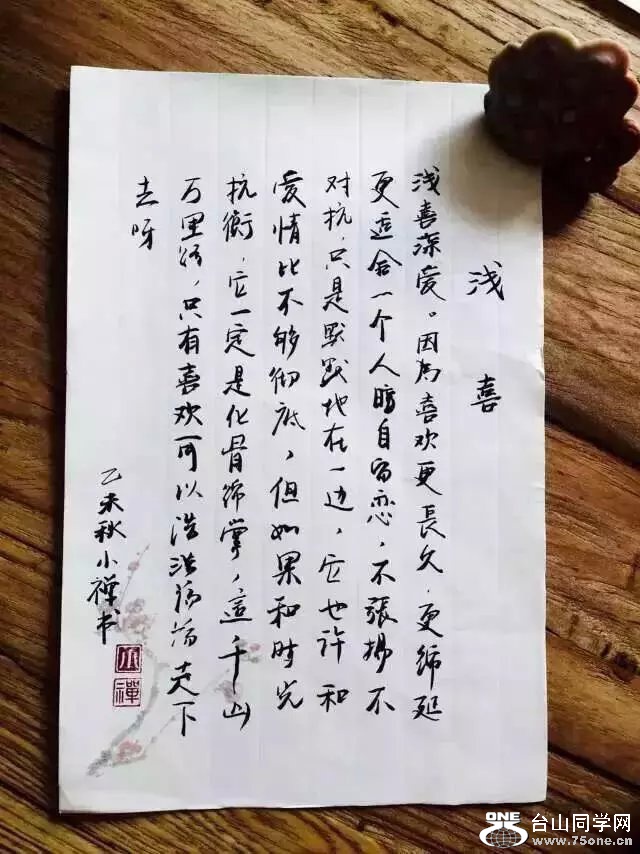 浅喜
浅喜深爱。因为喜欢更長久，更绵延
更适合一个人暗自留恋，不張揚不
对抗，只是默默地在一边，它也许和
爱情比不够彻底，但如果和时光
抗衡，它一定是化骨绵掌，這千山
万里路，只有喜欢可以浩浩荡荡走下
去呀
乙未秋小禅书
小禪
ONE 台山同学网
www.75one.cn